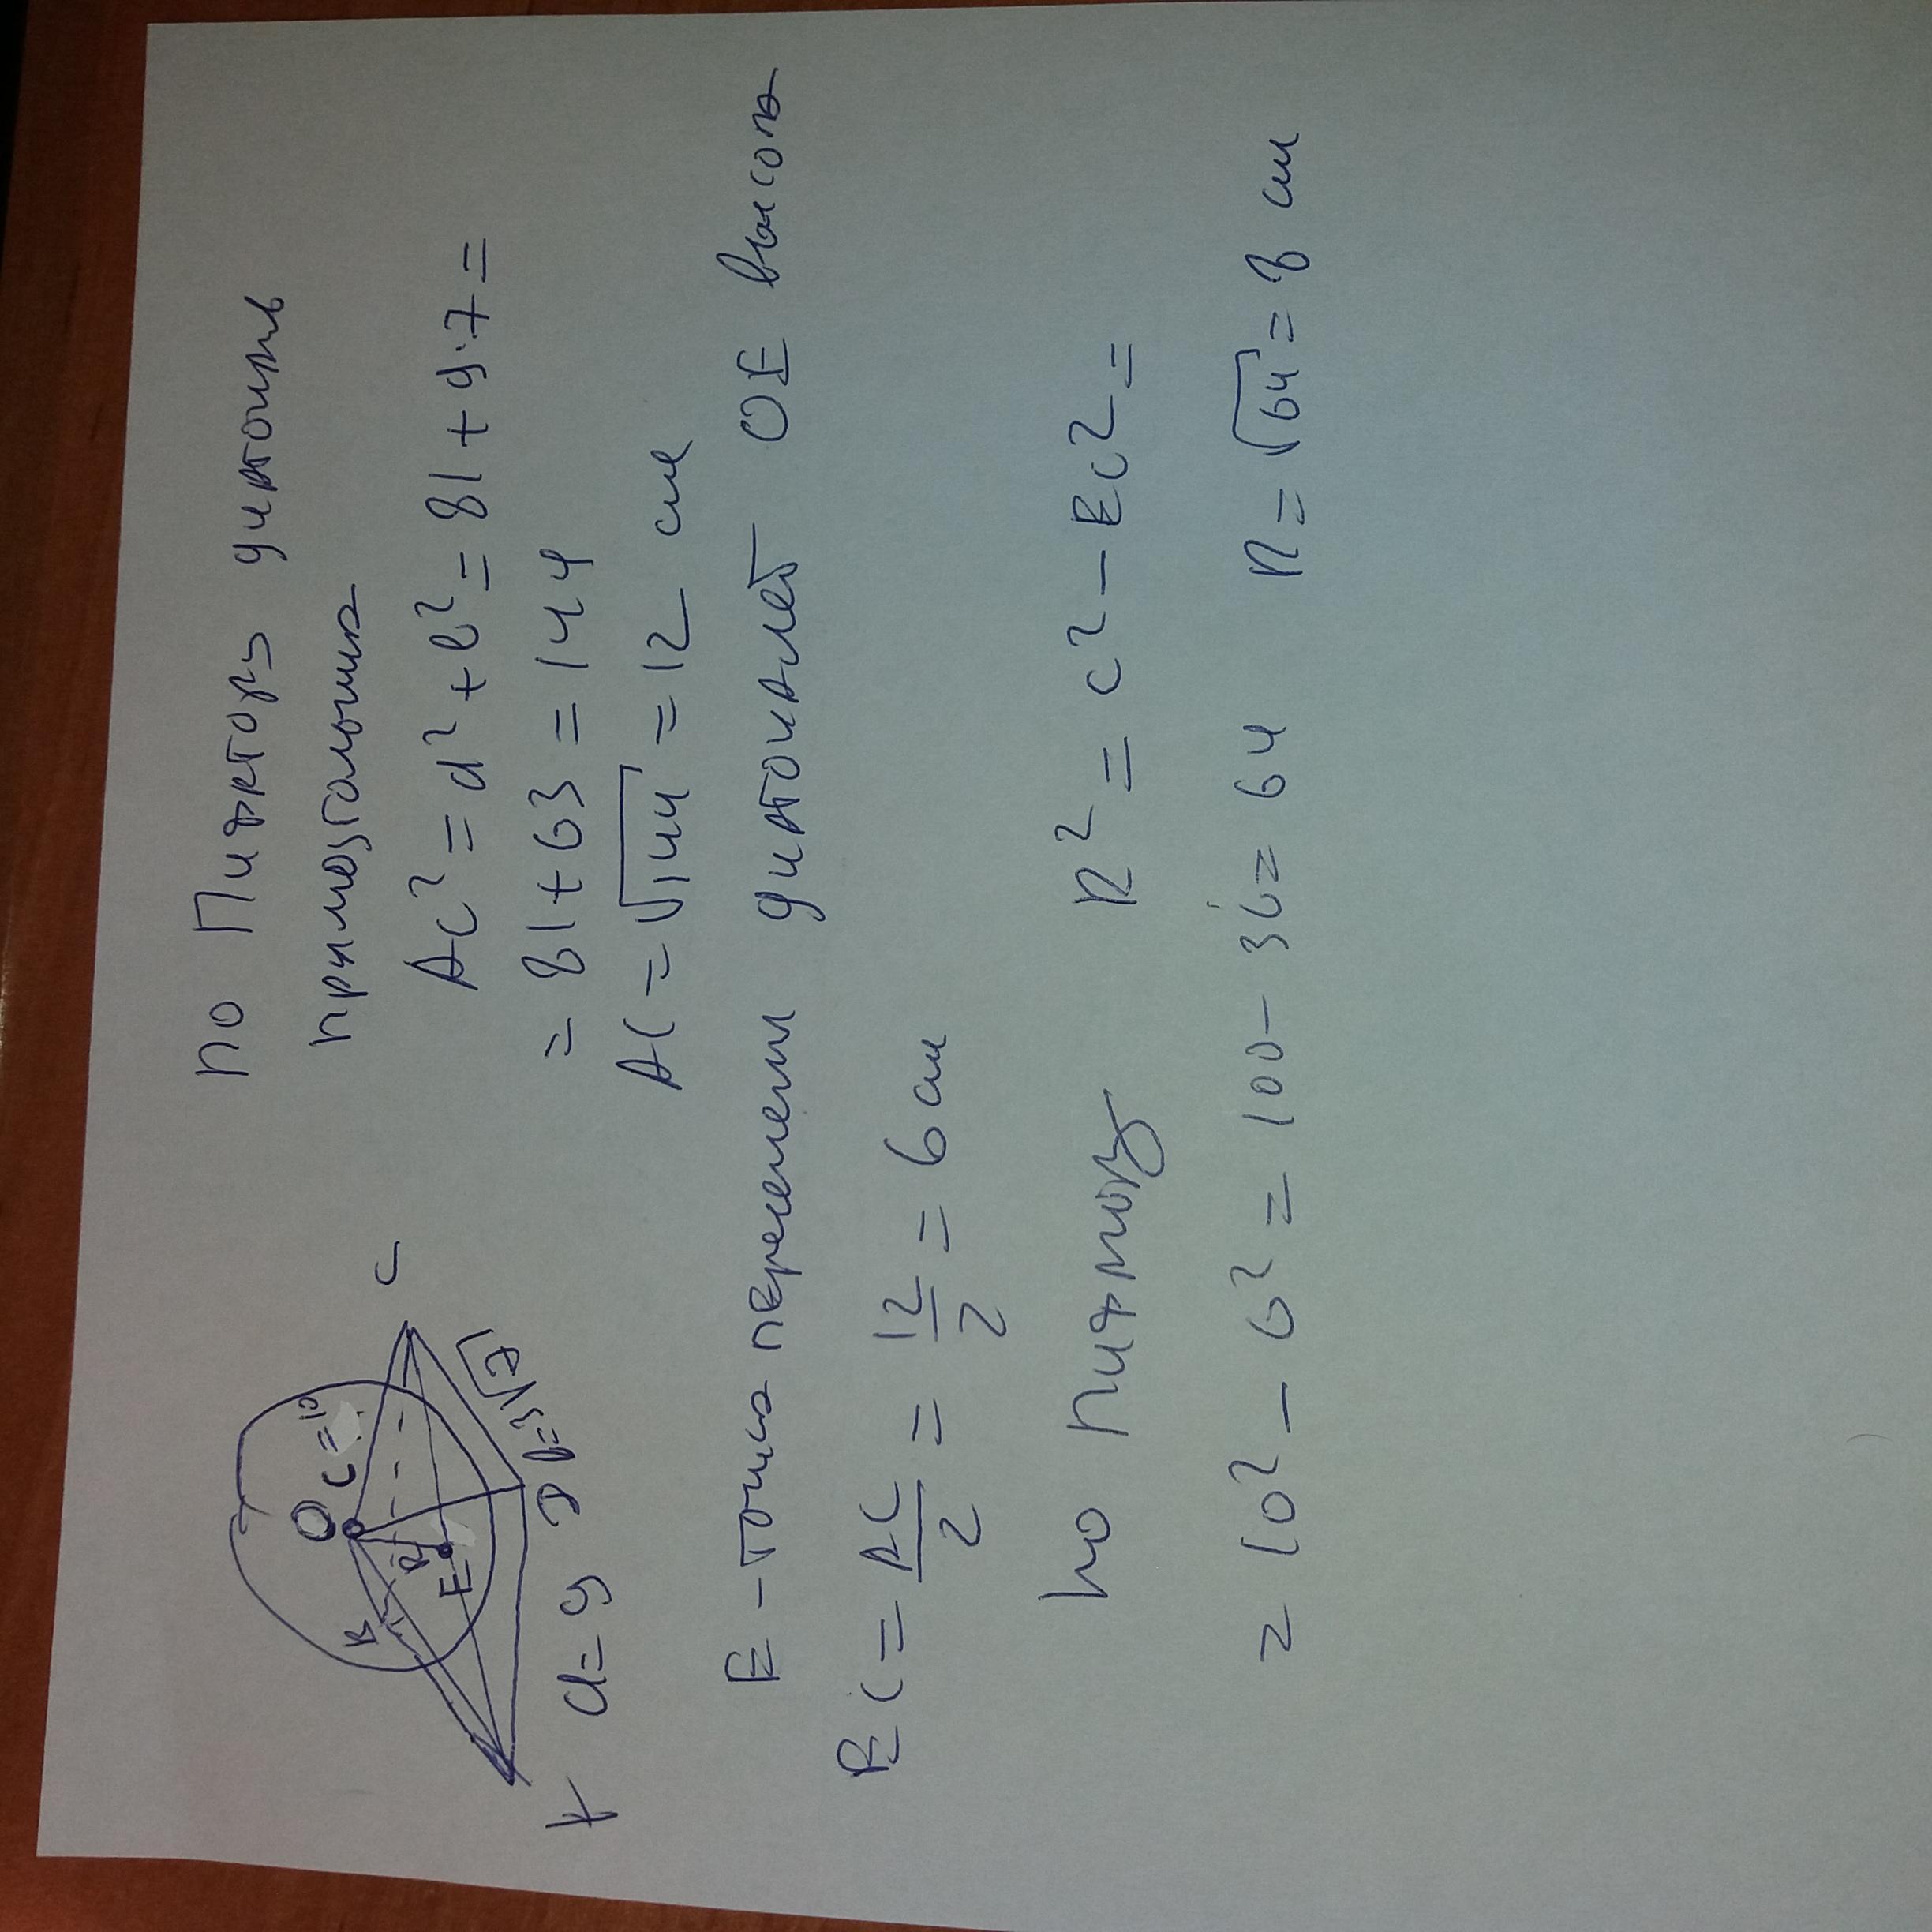 O
c=10
C
B
R
E
A
D
a=9
b=3√7
по Пифагору диагональ
прямоугольника
AC² = d² + b² = 81 + 9·7 =
= 81 + 63 = 144
AC = √144 = 12 см
E - точка пересечения диагоналей OE высота
EC = AC/2 = 12/2 = 6 см
по Пифагору R² = c² - EC² =
= 10² - 6² = 100 - 36 = 64 R = √64 = 8 см